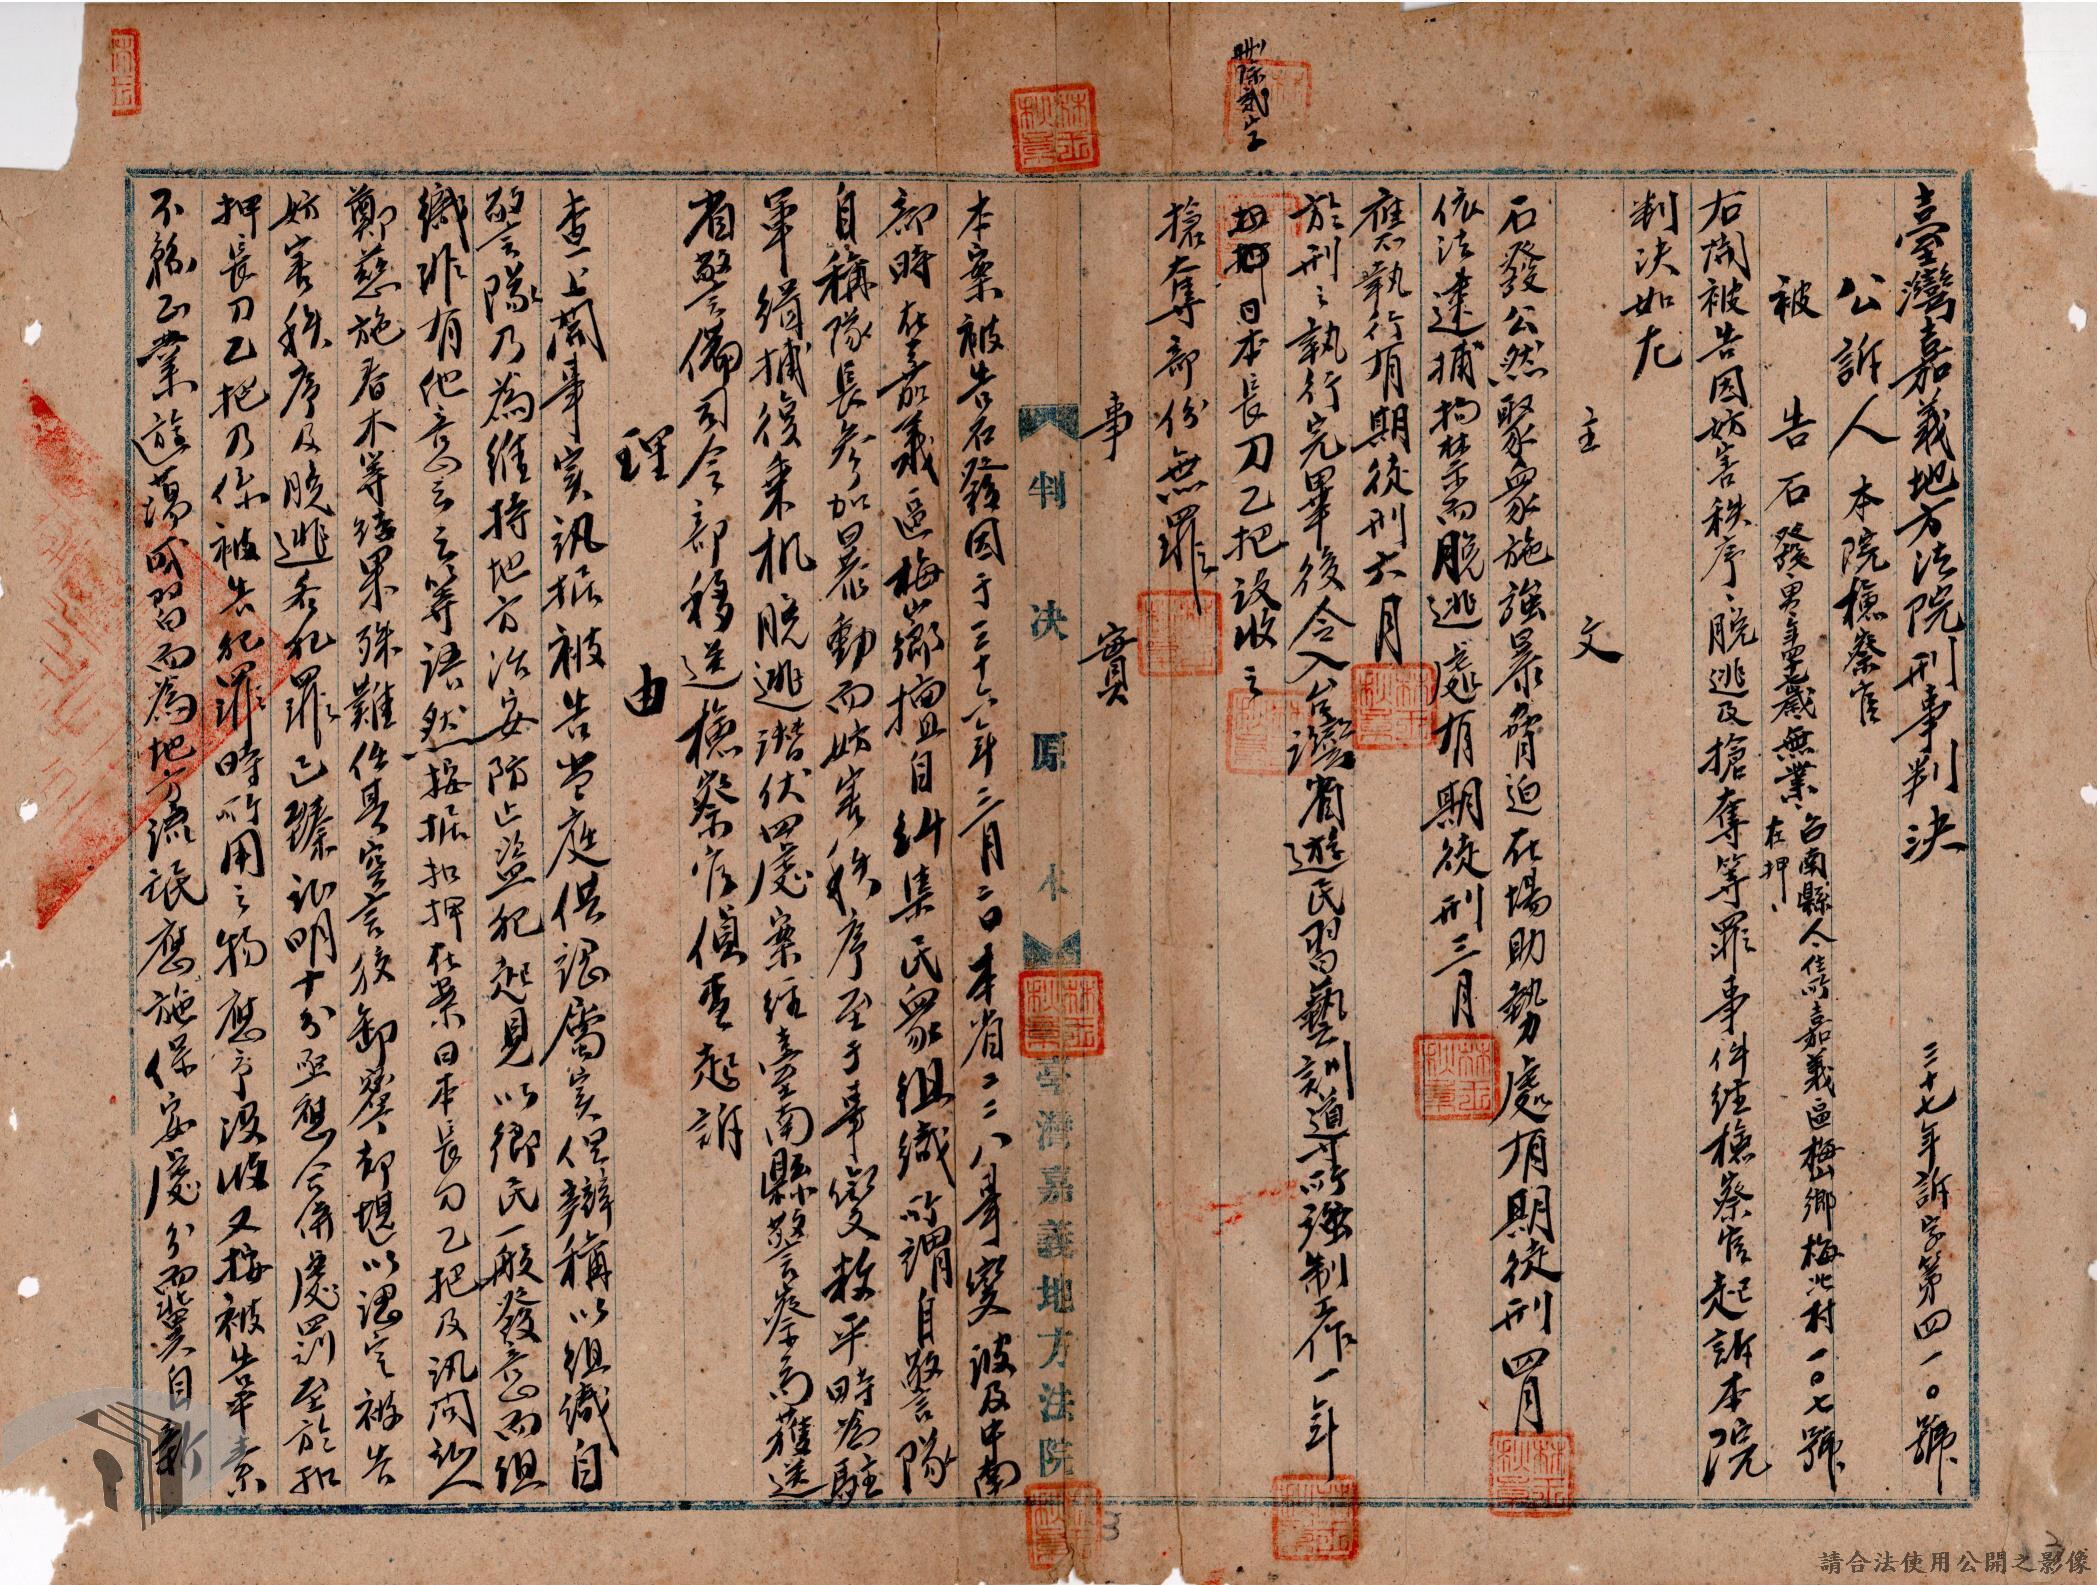 臺灣嘉義地方法院刑事判決
三十七年訴字第四一〇號
公訴人 本院檢察官
被告 石發 男 歲 無業 台南縣人住所嘉義區梅山鄉梅北村一〇七號
在押
右開被告因妨害秩序、脫逃及搶奪等罪事件經檢察官起訴本院
判決如左
主文
石發公然聚眾施強暴脅迫在場助勢處有期徒刑四月
依法逮捕拘禁而脫逃處有期徒刑三月
應執行有期徒刑六月
於刑之執行完畢後令入台灣省遊民習藝訓導所強制工作一年
日本長刀乙把沒收之
刪除貳字
搶奪部份無罪
事實
判決原本
臺灣嘉義地方法院
本案被告石發因于三十六年三月二日本省二二八事變波及中南
部時在嘉義區梅山鄉擅自糾集民眾組織所謂自警隊
自稱隊長參加暴動而妨害秩序至于事變敉平時為駐
軍緝捕後乘机脫逃潛伏四處案經臺南縣警察局獲送
省警備司令部移送檢察官偵查起訴
理由
查上開事实訊据被告當庭供認屬实但辯稱以組織自
警隊乃為維持地方治安防止盜犯起見以鄉民一般發意而組
織非有他意云云等語然按据扣押在案日本長刀乙把及訊問証人
鄭慈施春木等結果殊難任其空言狡卸責却堪以認定被告
妨害秩序及脫逃各犯罪已臻証明十分亟應合併處罰至於扣
押長刀乙把乃係被告犯罪時所用之物應予沒收又按被告平素
不務正業遊蕩成習而為地方流氓應施保安處分而冀自新
林
秋
請合法使用公開之影像